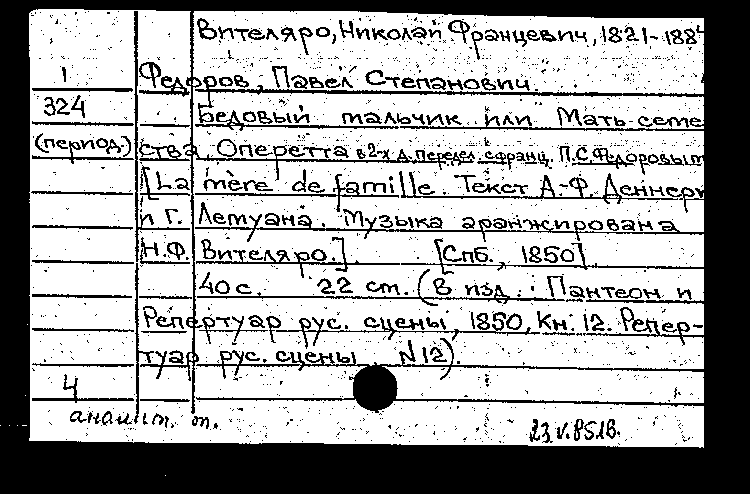 Вителяро, Николай Францевич, 1821-1884
1 Федоров, Павел Степанович.
324 Бедовый мальчик или Мать семе
(период.) ства. Оперетта в 2-х д. передел. с франц. П.С. Федоровым
[La mère de famille. Текст А-Ф. Деннери
и Г. Лемуана. Музыка аранжирована
Н.Ф. Вителяро.] [Спб., 1850]
40 с. 22 ст. (В изд.: Пантеон и
Репертуар рус. сцены, 1850, Кн. 12. Репер-
туар рус. сцены N 12).
4
аналит. т.